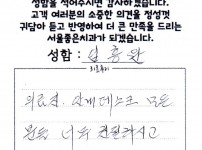 성함을 적어주시면 감사하겠습니다.
고객 여러분의 소중한 의견을 정성껏
귀담아 듣고 반영하여 더 큰 만족을 드리는
서울좋은치과가 되겠습니다.
성함 :
의료진, 안내데스크 모든
분들 너무 친절하시고